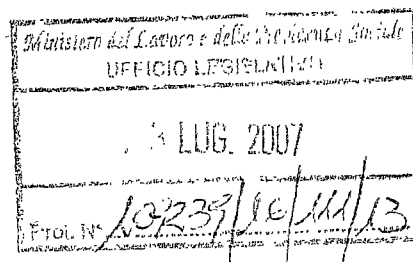 Ministero del Lavoro e della Previdenza Sociale
UFFICIO LEGISLATIVO
LUG. 2007
Prot. N° 10239/16/111/13